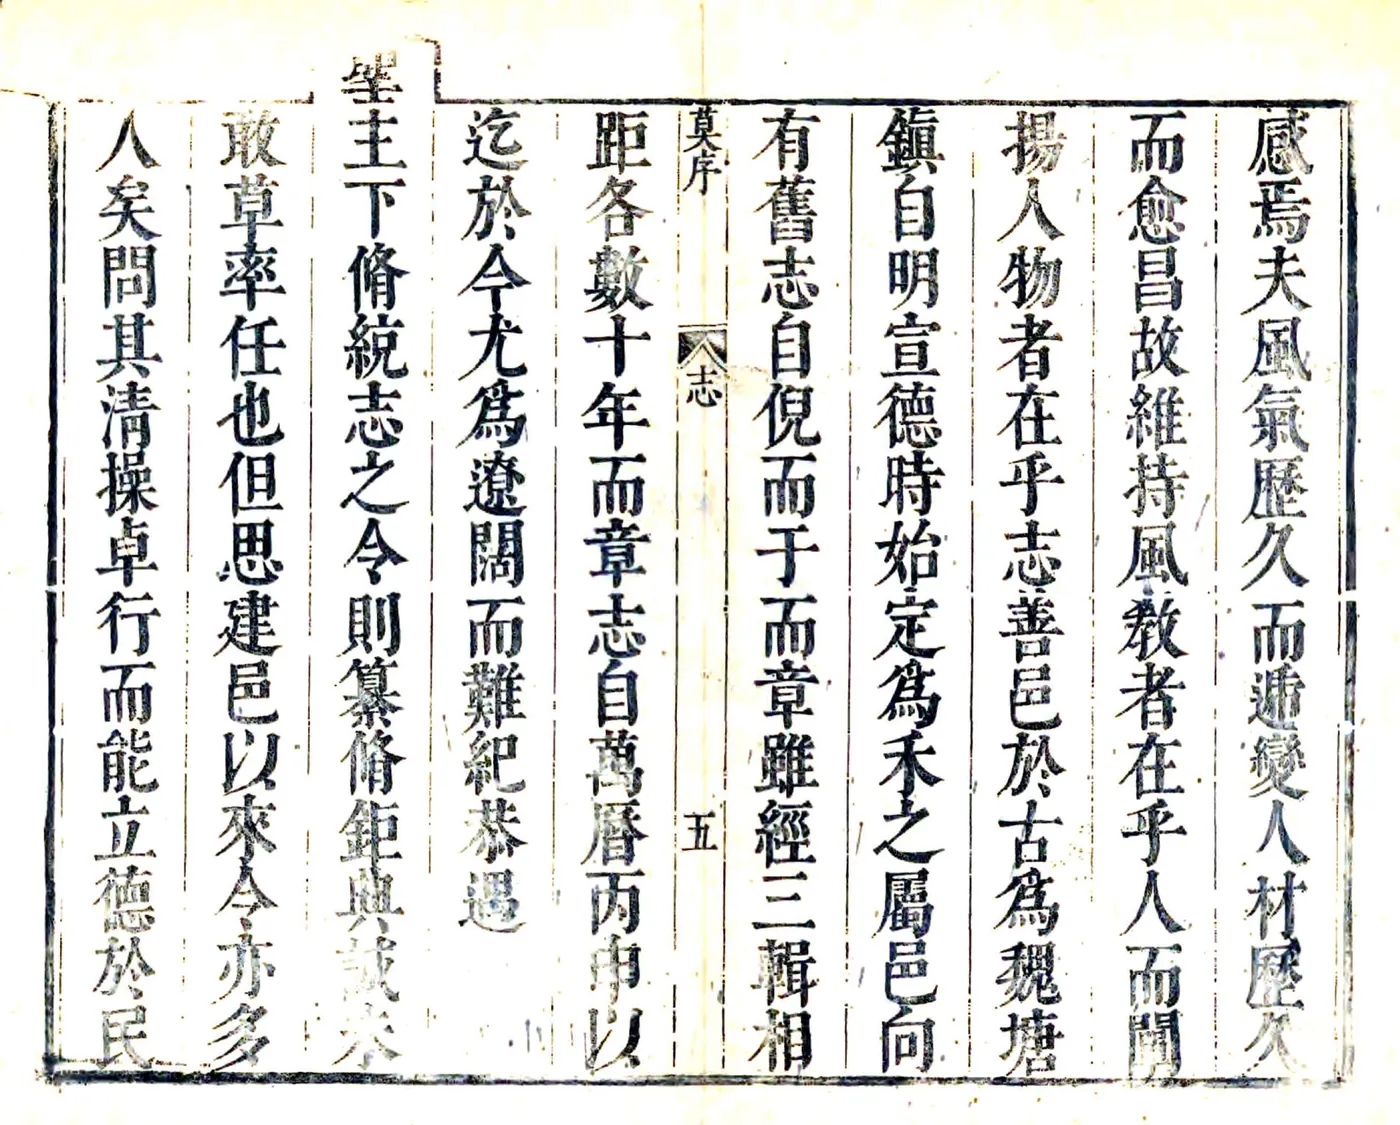 感焉夫風氣歷久而遞變人材歷久
而愈昌故維持風教者在乎人而闡
揚人物者在乎志善邑於古爲魏塘
鎮自明宣德時始定爲禾之屬邑向
有舊志自倪而于而章雖經三輯相
莫序
志
五
距各數十年而章志自萬曆丙申以
迄於今尤爲遼闊而難紀恭遇
聖主下脩統志之令則纂脩鉅典誠未
敢草率任也但思建邑以來令亦多
人矣問其清操卓行而能立德於民